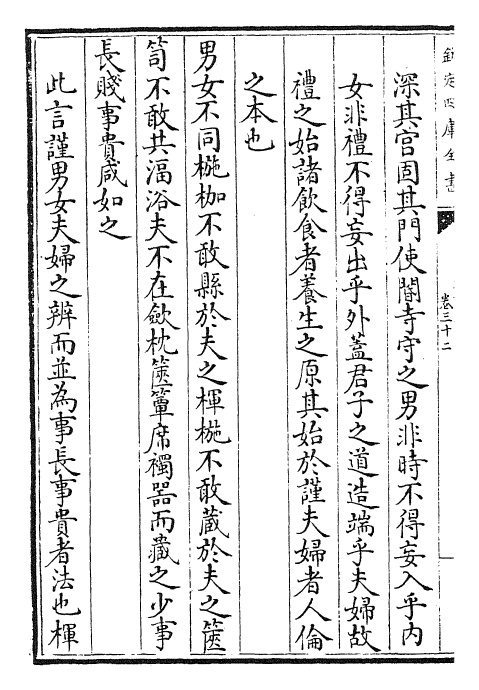 欽定四庫全書
卷三十二
深其宫固其門使閽寺守之男非時不得妄入乎内
女非禮不得妄出乎外蓋君子之道造端乎夫婦故
禮之始諸飲食者養生之原其始於謹夫婦者人倫
之本也
男女不同椸枷不敢縣於夫之楎椸不敢蔵於夫之篋
笥不敢共湢浴夫不在歛枕篋簟席襡器而藏之少事
長賤事貴咸如之
此言謹男女夫婦之辨而並為事長事貴者法也楎